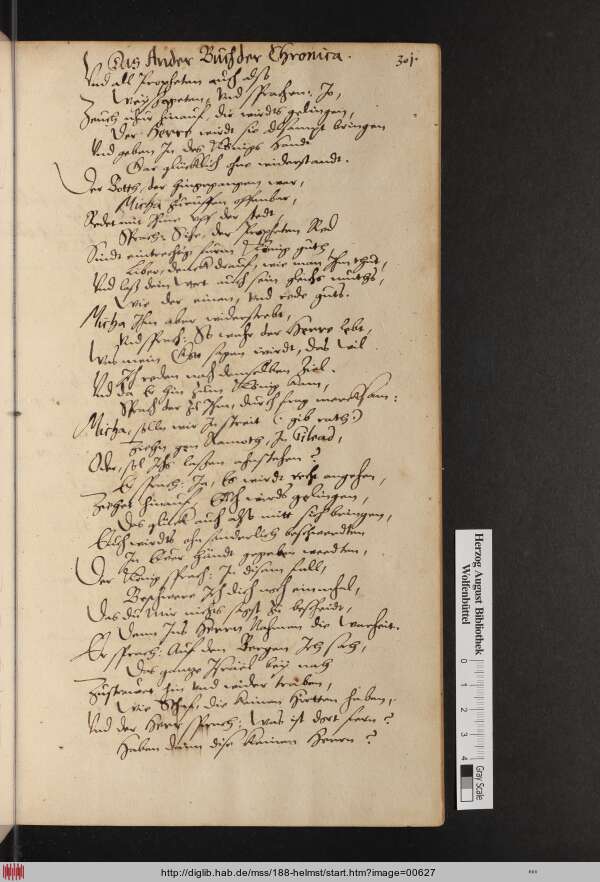 Das Ander Buch der Chronica. 301.
Vnd all Propheten auch also
Weyssageten, Vnd sprachen: Jo,
Zeuch nhur hinauf, dir wirdts gelingen,
Der Herre wirdt sie allsampt bringen
Vnd geben In des Königs Handt
Gar glücklich ohne widerstandt.
Der Botth, der hingegangen war,
Micha zuruffen offenbar,
Redet mit Ihme vff der stedt,
Sprach: Sihe, der Propheten Red
Sindt eintrechtig fürm König guth,
Lieber, denck drauf, wie man Ihm thut,
Vnd laß dein Wort auch sein gleichs muths,
Wie der einen, Vnd rede guts.
Micha Ihm aber widerstrebt,
Vnd sprach: So wahr der Herre lebt,
Was mein Gott sagen wirdt, das will
Ich reden nach demselben Ziel.
Vnd da Er hin zum König kam,
Sprach der zu Ihm, durch frag mercksam:
Micha, sollen wir In streit (gib rath)
Ziehn gen Ramoth, In Gilead,
Oder, sol Ichs lassen anstehen?
Er sprach: Ja, Es wirdt recht angehen,
Ziehet hinauf, Euch wirds gelingen,
Das glück auch alls mitt sich bringen,
Euch wirdts ohn sonderlich beschwerdten
In Euer Händt gegeben werdten,
Der König sprach: In disem fall,
Beschwere Ich dich noch einmahl,
Das du Mir nichts sagst zu bescheidt,
Denn Ins Herrn Nahmen die Warheit.
Er sprach: Auf den Bergen Ich sach,
Das gantze Israel bey nach
Zustrewet hin vnd wider traben,
Wie Schaf, die keinen Hirtten haben,
Vnd der Herr sprach: Was ist dort fern?
Haben dann dise keinen Herrn?
Herzog August Bibliothek
Wolfenbüttel
0 1 2 3 4
Gray Scale
http://diglib.hab.de/mss/188-helmst/start.htm?image=00627